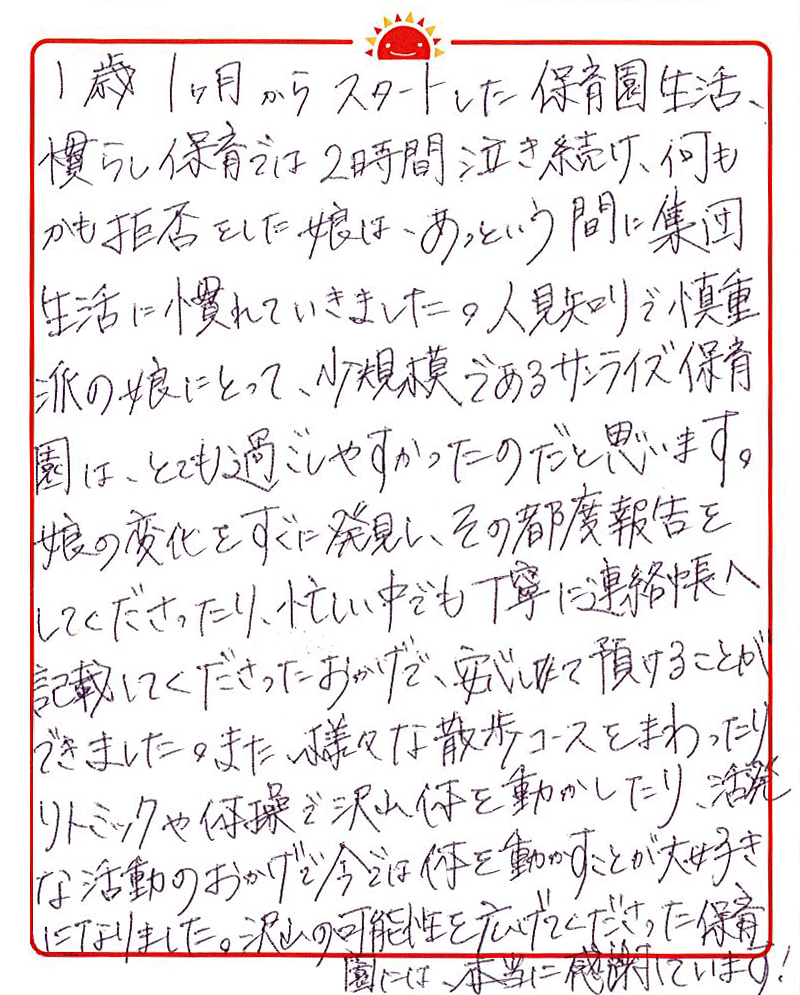 1歳1ヶ月からスタートした保育園生活、
慣らし保育では2時間泣き続け、何も
かも拒否をした娘は、あっという間に集団
生活に慣れていきました。人見知りで慎重
派の娘にとって、少規模であるサンライズ保育
園は、とても過ごしやすかったのだと思います。
娘の変化をすぐに発見し、その都度報告を
してくださったり、忙しい中でも丁寧に連絡帳へ
記載してくださったおかげで、安心して預けることが
できました。また、様々な散歩コースをまわったり
リトミックや体操で沢山体を動かしたり、活発
な活動のおかげで今では体を動かすことが大好き
になりました。沢山の可能性を広げてくださった保育
園には、本当に感謝しています!